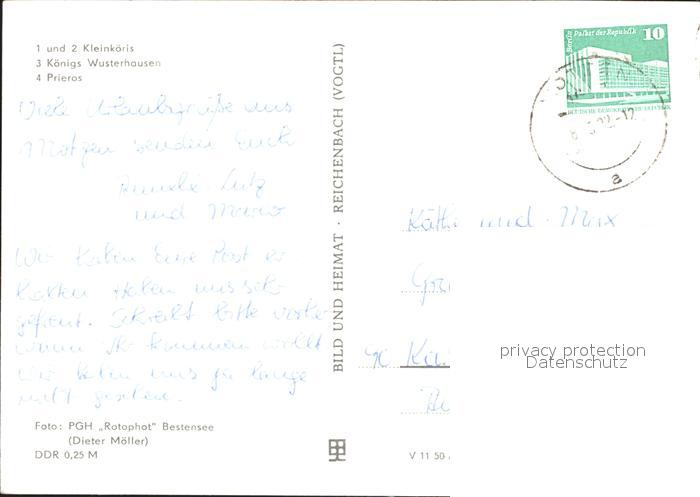 1 und 2 Kleinköris
3 Königs Wusterhausen
4 Prieros
Viele Urlaubsgrüße aus
Motzen senden Euch
Lutz
und Mario
Wir haben Eure Post er
halten. Haben uns sehr
gefreut. Schreibt bitte vorher
wann Ihr kommen wollt
Wir haben uns ja lange
nicht gesehen.
Foto: PGH „Rotophot" Bestensee
(Dieter Möller)
DDR 0,25 M
BILD UND HEIMAT · REICHENBACH (VOGTL)
V 11 50
Berlin Palast der Republik
10
DEUTSCHE DEMOKRATISCHE REPUBLIK
a
Käthe und Max
privacy protection
Datenschutz